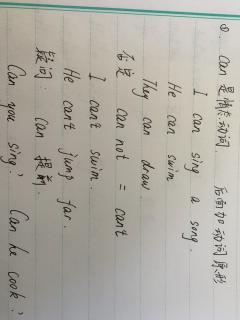 ② can 是情态动词. 后面加动词原形
I can sing a song.
He can swim
They can draw.
否定 can not = can't
I can't swim.
He can't jump far.
疑问: can 提前.
Can you sing? Can he cook?